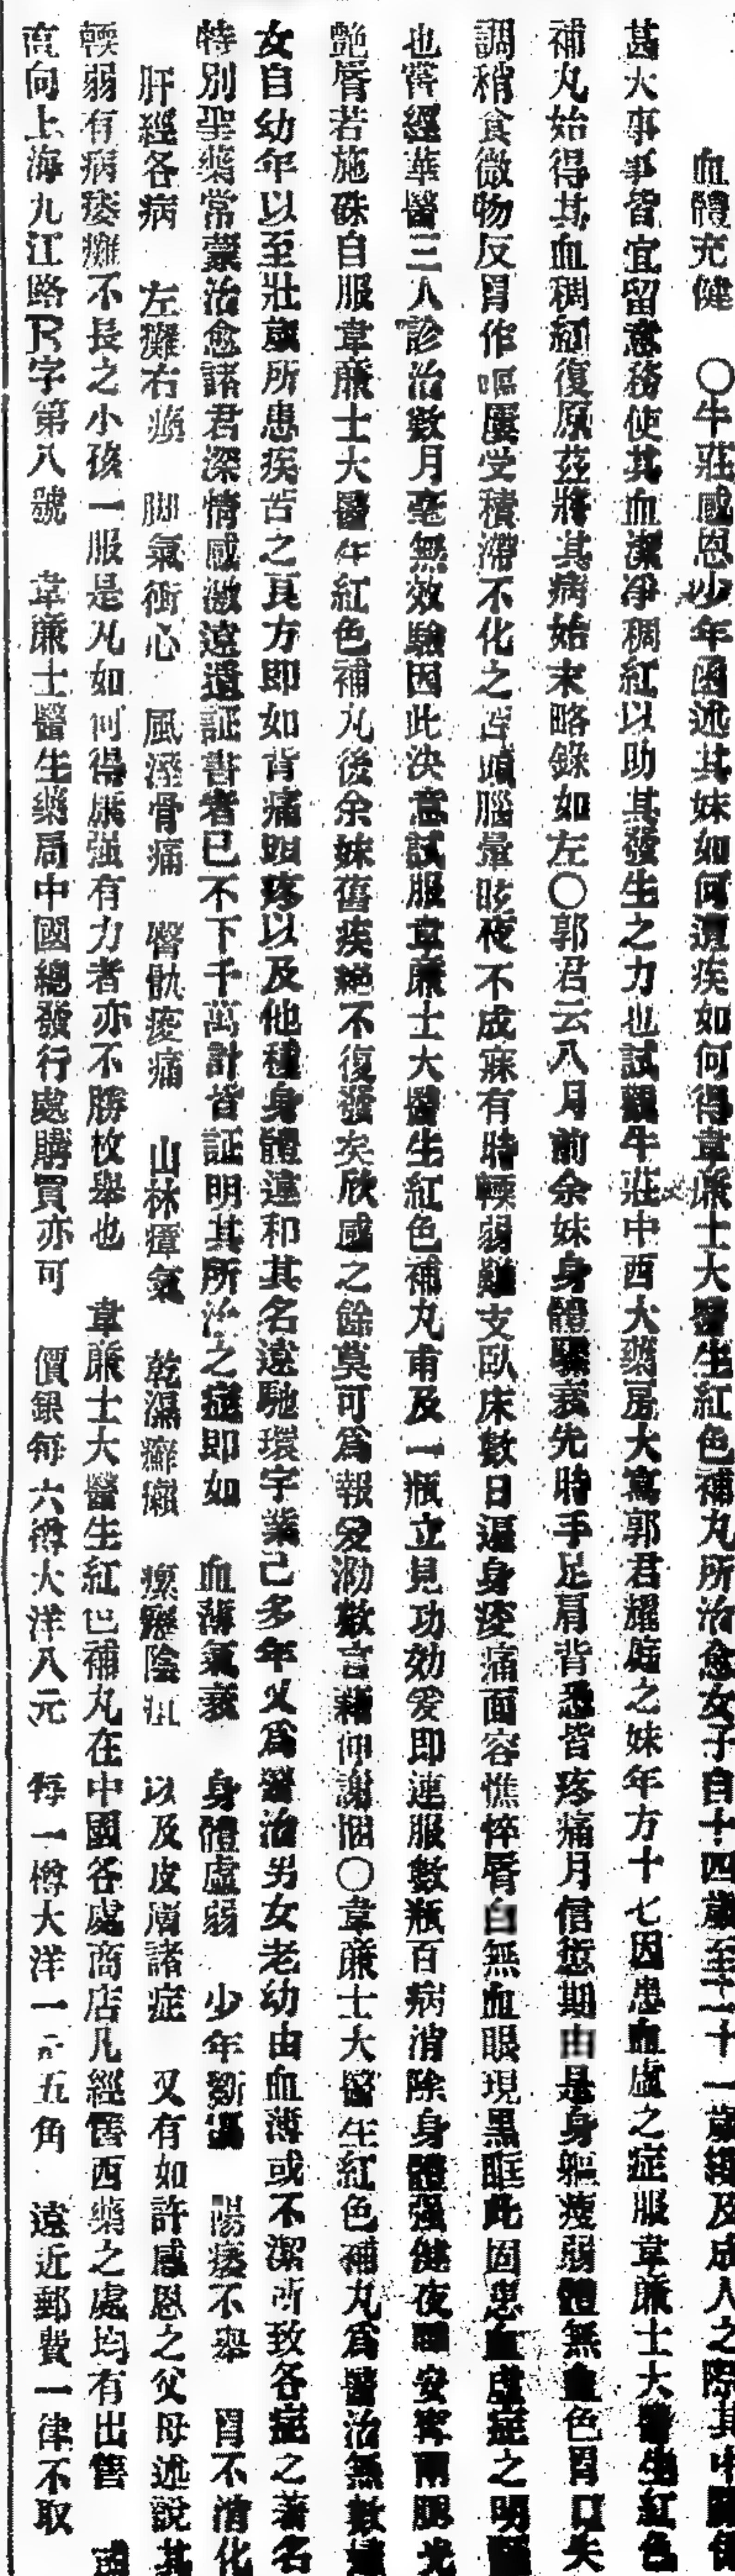 血體充健　○牛莊感恩少年函述其妹如何遘疾如何得韋廉士大醫生紅色補丸所治愈女子自十四歲至二十一歲將及成人之際其中
甚大事事皆宜留意務使其血潔凈稠紅以助其發生之力也試觀牛莊中西大藥房大寫郭君耀庭之妹年方十七因患血虛之症服韋廉士大醫生紅色
補丸始得其血稠紅復原茲將其病始末略錄如左○郭君云八月前余妹身體驟衰先時手足肩背悉皆疼痛月信愆期由是身軀瘦弱體無血色胃口失
調稍食微物反胃作嘔屢受積滯不化之苦頭腦暈眩夜不成寐有時輭弱難支臥床數日遍身痠痛面容憔悴唇白無血眼現黑眶此固患血虛症之明
也嘗經華醫三人診治數月毫無效驗因此決意試服韋廉士大醫生紅色補丸甫及一瓶立見功効爰即連服數瓶百病消除身體强健夜眠安寧兩腮光
艷唇若施硃自服韋廉士大醫生紅色補丸後余妹舊疾絕不復發矣欣感之餘莫可爲報爰泐數言藉伸謝悃○韋廉士大醫生紅色補丸爲醫治無數
女自幼年以至壯歲所患疾苦之良方即如背痛頭疼以及他種身體違和其名遠馳環宇業已多年乂爲醫治男女老幼由血薄或不潔所致各症之著名
特別聖藥常蒙治愈諸君深情感激遠道証書者已不下千萬計皆証明其所治之症即如　血薄氣衰　身體虛弱　少年斲喪　陽痿不舉　胃不消化
肝經各病　左癱右瘓　脚氣衝心　風溼骨痛　臀骩痠痛　山林瘴氣　乾濕癬癩　瘰癧陰疽　以及皮膚諸症　又有如許感恩之父母述說其
輭弱有病痿癱不長之小孩一服是丸如何得康强有力者亦不勝枚舉也　韋廉士大醫生紅色補丸在中國各處商店凡經售西藥之處均有出售
直向上海九江路B字第八號　韋廉士醫生藥局中國總發行處購買亦可　價銀每六罇大洋八元　每一罇大洋一元五角　遠近郵費一律不取